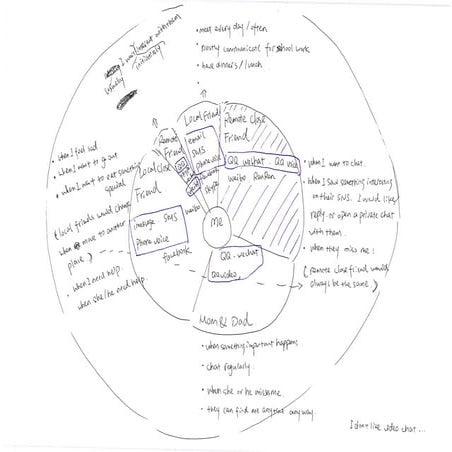 usually I won't interact with them
initiatively
• meet every day / often
• mostly communicate for school work
• have dinners / lunch.
Local Friend
email
SMS
phone voice
QQ
wechat
skype
Remote
Friend
QQ
weibo
Remote Close
Friend
QQ wechat . QQ voice
weibo RenRen
Local Close
Friend
imessage . SMS
phone voice
facebook
Me
QQ . wechat
QQ video
Mom & Dad
• when I feel sad
• when I want to go out
• when I want to eat something
special
( local friends would change
when move to another
place. )
• when I need help.
• when she / he need help.
• when I want to chat.
• when I saw something interesting
on their SNS. I would like
reply or open a private chat
with them.
• when they miss me.
( remote close friend would
always be the same. )
• when something important happens
• chat regularly.
• when she or he miss me.
• they can find me anytime anyway.
I don't like video chat ...